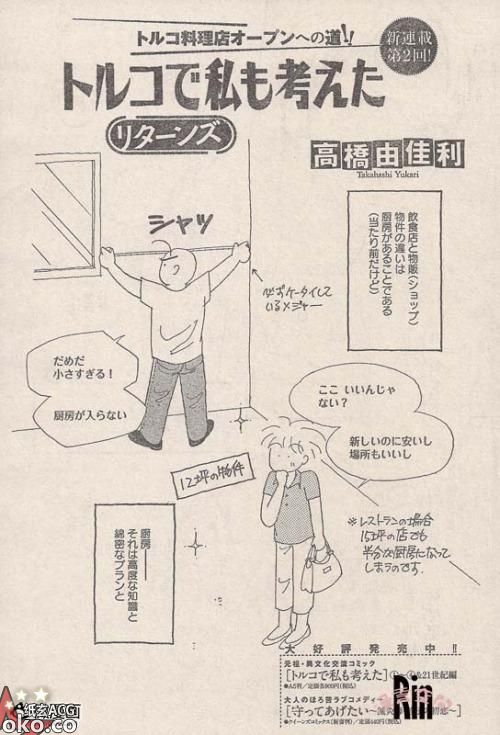 トルコ料理店オープンへの道!!
新連載
第2回!
トルコで私も考えた
リターンズ
高橋由佳利
Takahashi Yukari
飲食店と物販(ショップ)
物件の違いは
厨房があることである
(当たり前だけど)
シャッ
必ずケータイして
いるメジャー
だめだ
小さすぎる!
厨房が入らない
ここ いいんじゃ
ない?
新しいのに安いし
場所もいいし
12坪の物件
※レストランの場合
15坪の店でも
半分は厨房になって
しまうのです.
厨房――
それは高度な知識と
綿密なプランと
大好評発売中!!
元祖・異文化交流コミック
[トルコで私も考えた]
&21世紀編
●A5判/定価各900円(税込)
大人のほろ苦ラブコメディー
[守ってあげたい~
●クイーンズコミックス(新書判)/定価440円(税込)
Rin
紙玄ACGT
oko.co